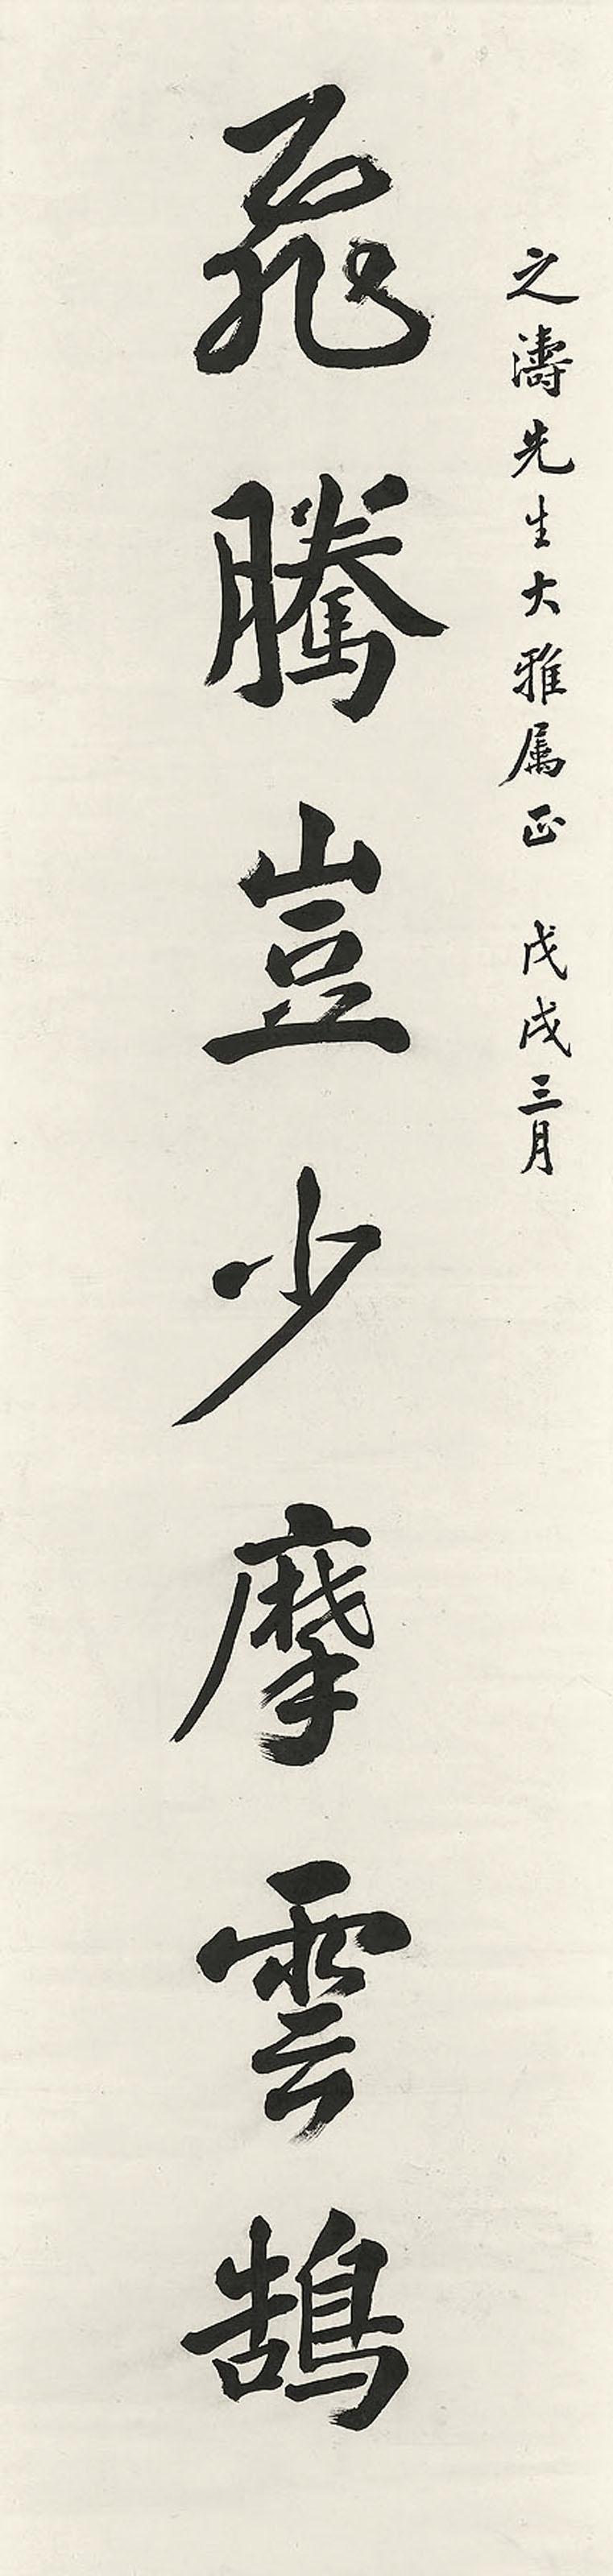 之濤先生大雅属正 戊戌三月
飛騰豈少摩雲鵠